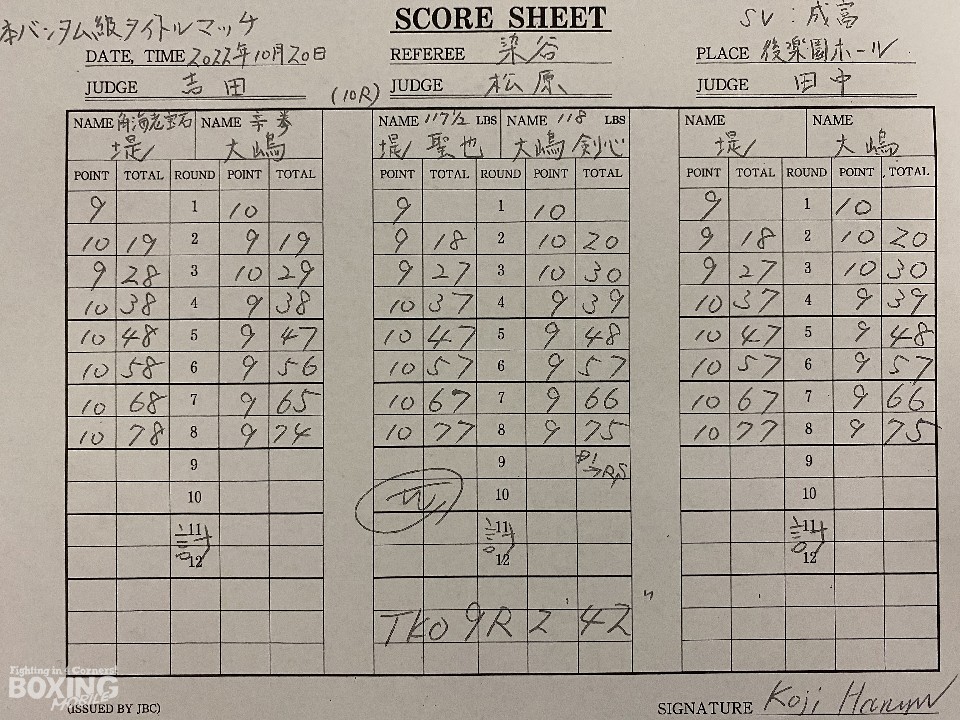 本バンタム級タイトルマッチ SCORE SHEET SV:成富
DATE, TIME 2022年10月20日 REFEREE 染谷 PLACE 後楽園ホール
JUDGE 吉田 (10R) JUDGE 松原 JUDGE 田中
NAME 角海老宝石 NAME 帝拳 NAME 117 1/2 LBS NAME 118 LBS NAME NAME
堤 大嶋 堤 聖也 大嶋 剣心 堤 大嶋
POINT TOTAL ROUND POINT TOTAL POINT TOTAL ROUND POINT TOTAL POINT TOTAL ROUND POINT TOTAL
9 1 10 9 1 10 9 1 10
10 19 2 9 19 9 18 2 10 20 9 18 2 10 20
9 28 3 10 29 9 27 3 10 30 9 27 3 10 30
10 38 4 9 38 10 37 4 9 39 10 37 4 9 39
10 48 5 9 47 10 47 5 9 48 10 47 5 9 48
10 58 6 9 56 10 57 6 9 57 10 57 6 9 57
10 68 7 9 65 10 67 7 9 66 10 67 7 9 66
10 78 8 9 74 10 77 8 9 75 10 77 8 9 75
9 9 9
10 10 10
11 11 11
12 12 12
TKO 9R 2'42"
Fighting in 4 Corners!
BOXING
MOBILE
(ISSUED BY JBC) SIGNATURE Koji